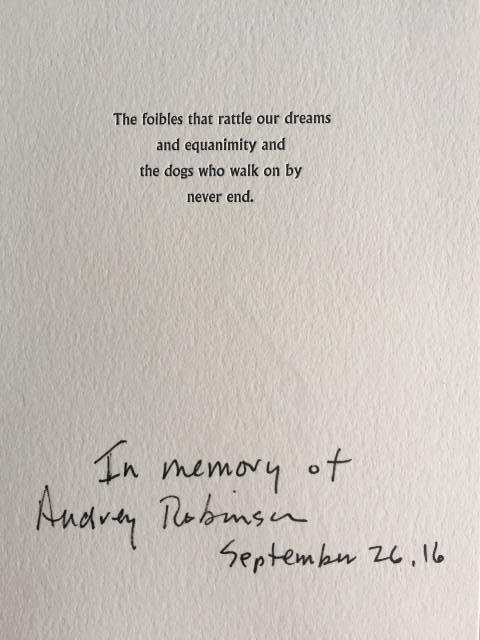 The foibles that rattle our dreams
and equanimity and
the dogs who walk on by
never end.
In memory of
Audrey Robinson
September 26, 16